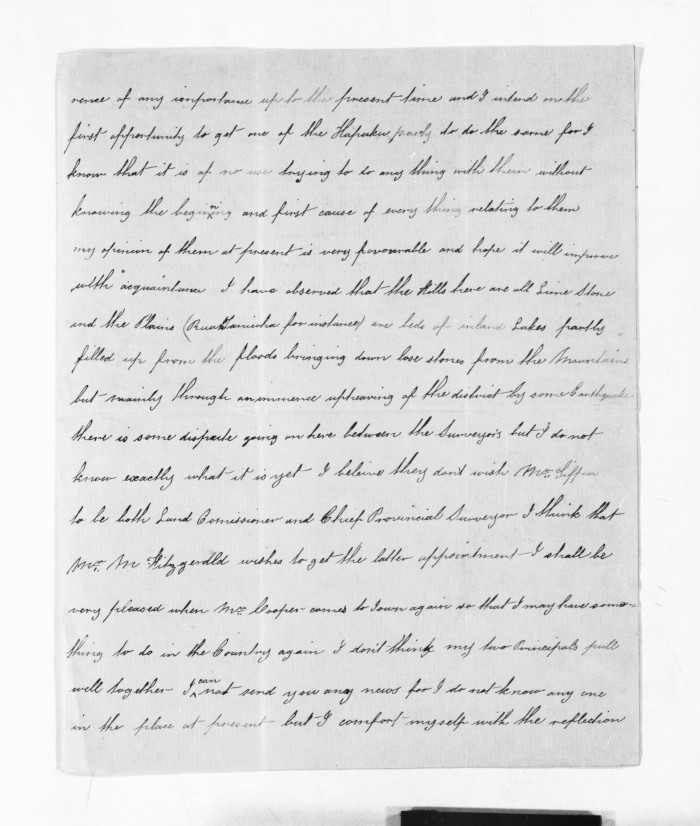 rence of any importance up to the present time and I intend on the
first opportunity to get one of the Hapuku party to do the same for I
know that it is of no use trying to do any thing with them without
knowing the beginning and first cause of every thing relating to them
my opinion of them at present is very favourable and hope it will improve
with acquaintance I have observed that the Hills here are all Lime Stone
and the Plains (Ruataniwha for instance) are beds of inland Lakes partly
filled up from the floods bringing down lose stones from the Mountains
but mainly through an immence upheaving of the district by some Earthquake
there is some dispute going on here between the Surveyors but I do not
know exactly what it is yet I beleive they don't wish Mr. Tiffen
to be both Land Comissioner and Chief Provincial Surveyor I think that
Mr. M Fitzgerdld wishes to get the latter appointment I shall be
very pleased when Mr Cooper comes to Town again so that I may have some=
thing to do in the Country again I don't think my two Principals pull
well together I can not send you any news for I do not know any one
in the place at present but I comfort myself with the reflection